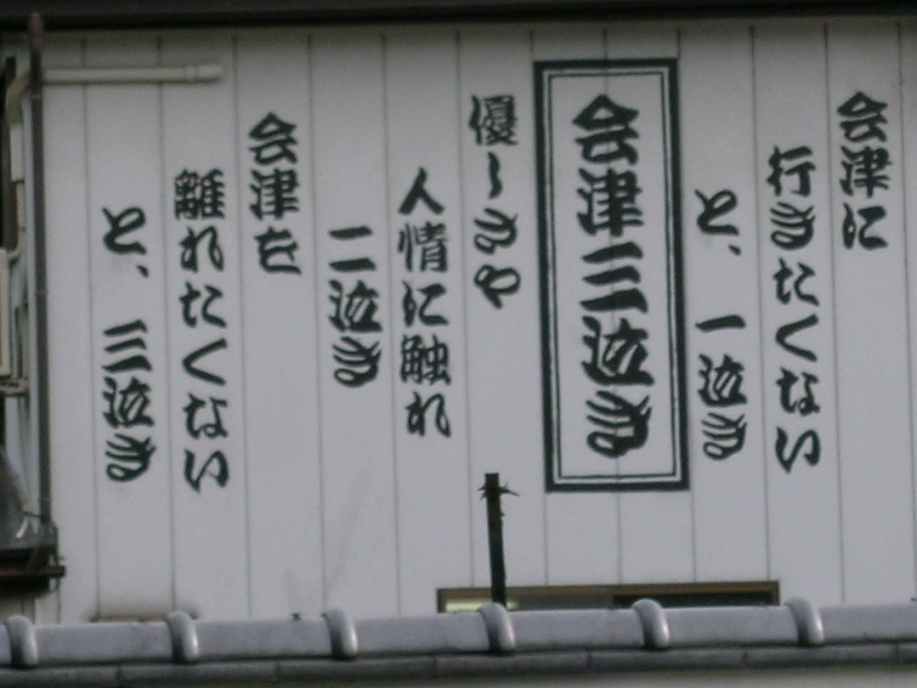 会津に
行きたくない
と、一泣き
会津三泣き
優〜きや
人情に触れ
二泣き
会津を
離れたくない
と、三泣き